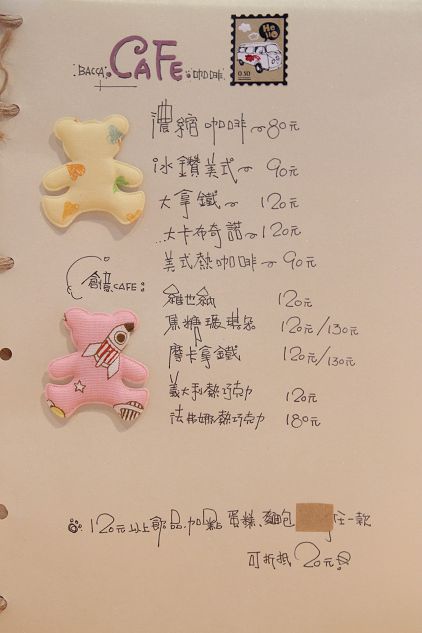 BACCA CAFE 咖啡
Hello
0.50
濃縮咖啡~80元
冰鑽美式~90元
大拿鐵~120元
...大卡布奇諾~120元
美式熱咖啡~90元
創意CAFE
維也納 120元
焦糖瑪琪朵 120元/130元
摩卡拿鐵 120元/130元
義大利熱巧克力 120元
法芙娜熱巧克力 180元
120元以上飲品.加點蛋糕、麵包 任一款
可折抵20元